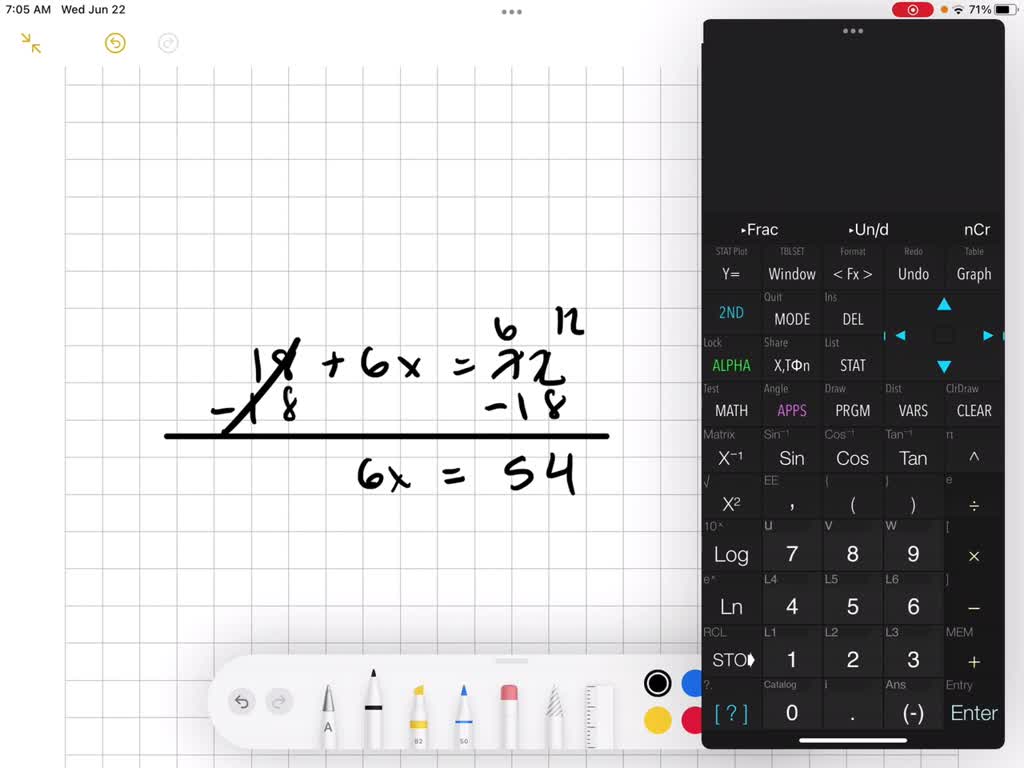 7:05 AM Wed Jun 22
71%
6 12
18 + 6x = 72
-18 -18
6x = 54
A
82
50
▸Frac ▸Un/d nCr
STAT Plot TBLSET Format Redo Table
Y= Window < Fx > Undo Graph
Quit Ins
2ND MODE DEL
Lock Share List
ALPHA X,TΦn STAT
Test Angle Draw Dist ClrDraw
MATH APPS PRGM VARS CLEAR
Matrix Sin⁻¹ Cos⁻¹ Tan⁻¹ π
X⁻¹ Sin Cos Tan ^
√ EE { } e
X² , ( ) ÷
10ˣ u v w [
Log 7 8 9 ×
eˣ L4 L5 L6 ]
Ln 4 5 6 −
RCL L1 L2 L3 MEM
STO 1 2 3 +
?. Catalog i Ans Entry
[ ? ] 0 . (-) Enter